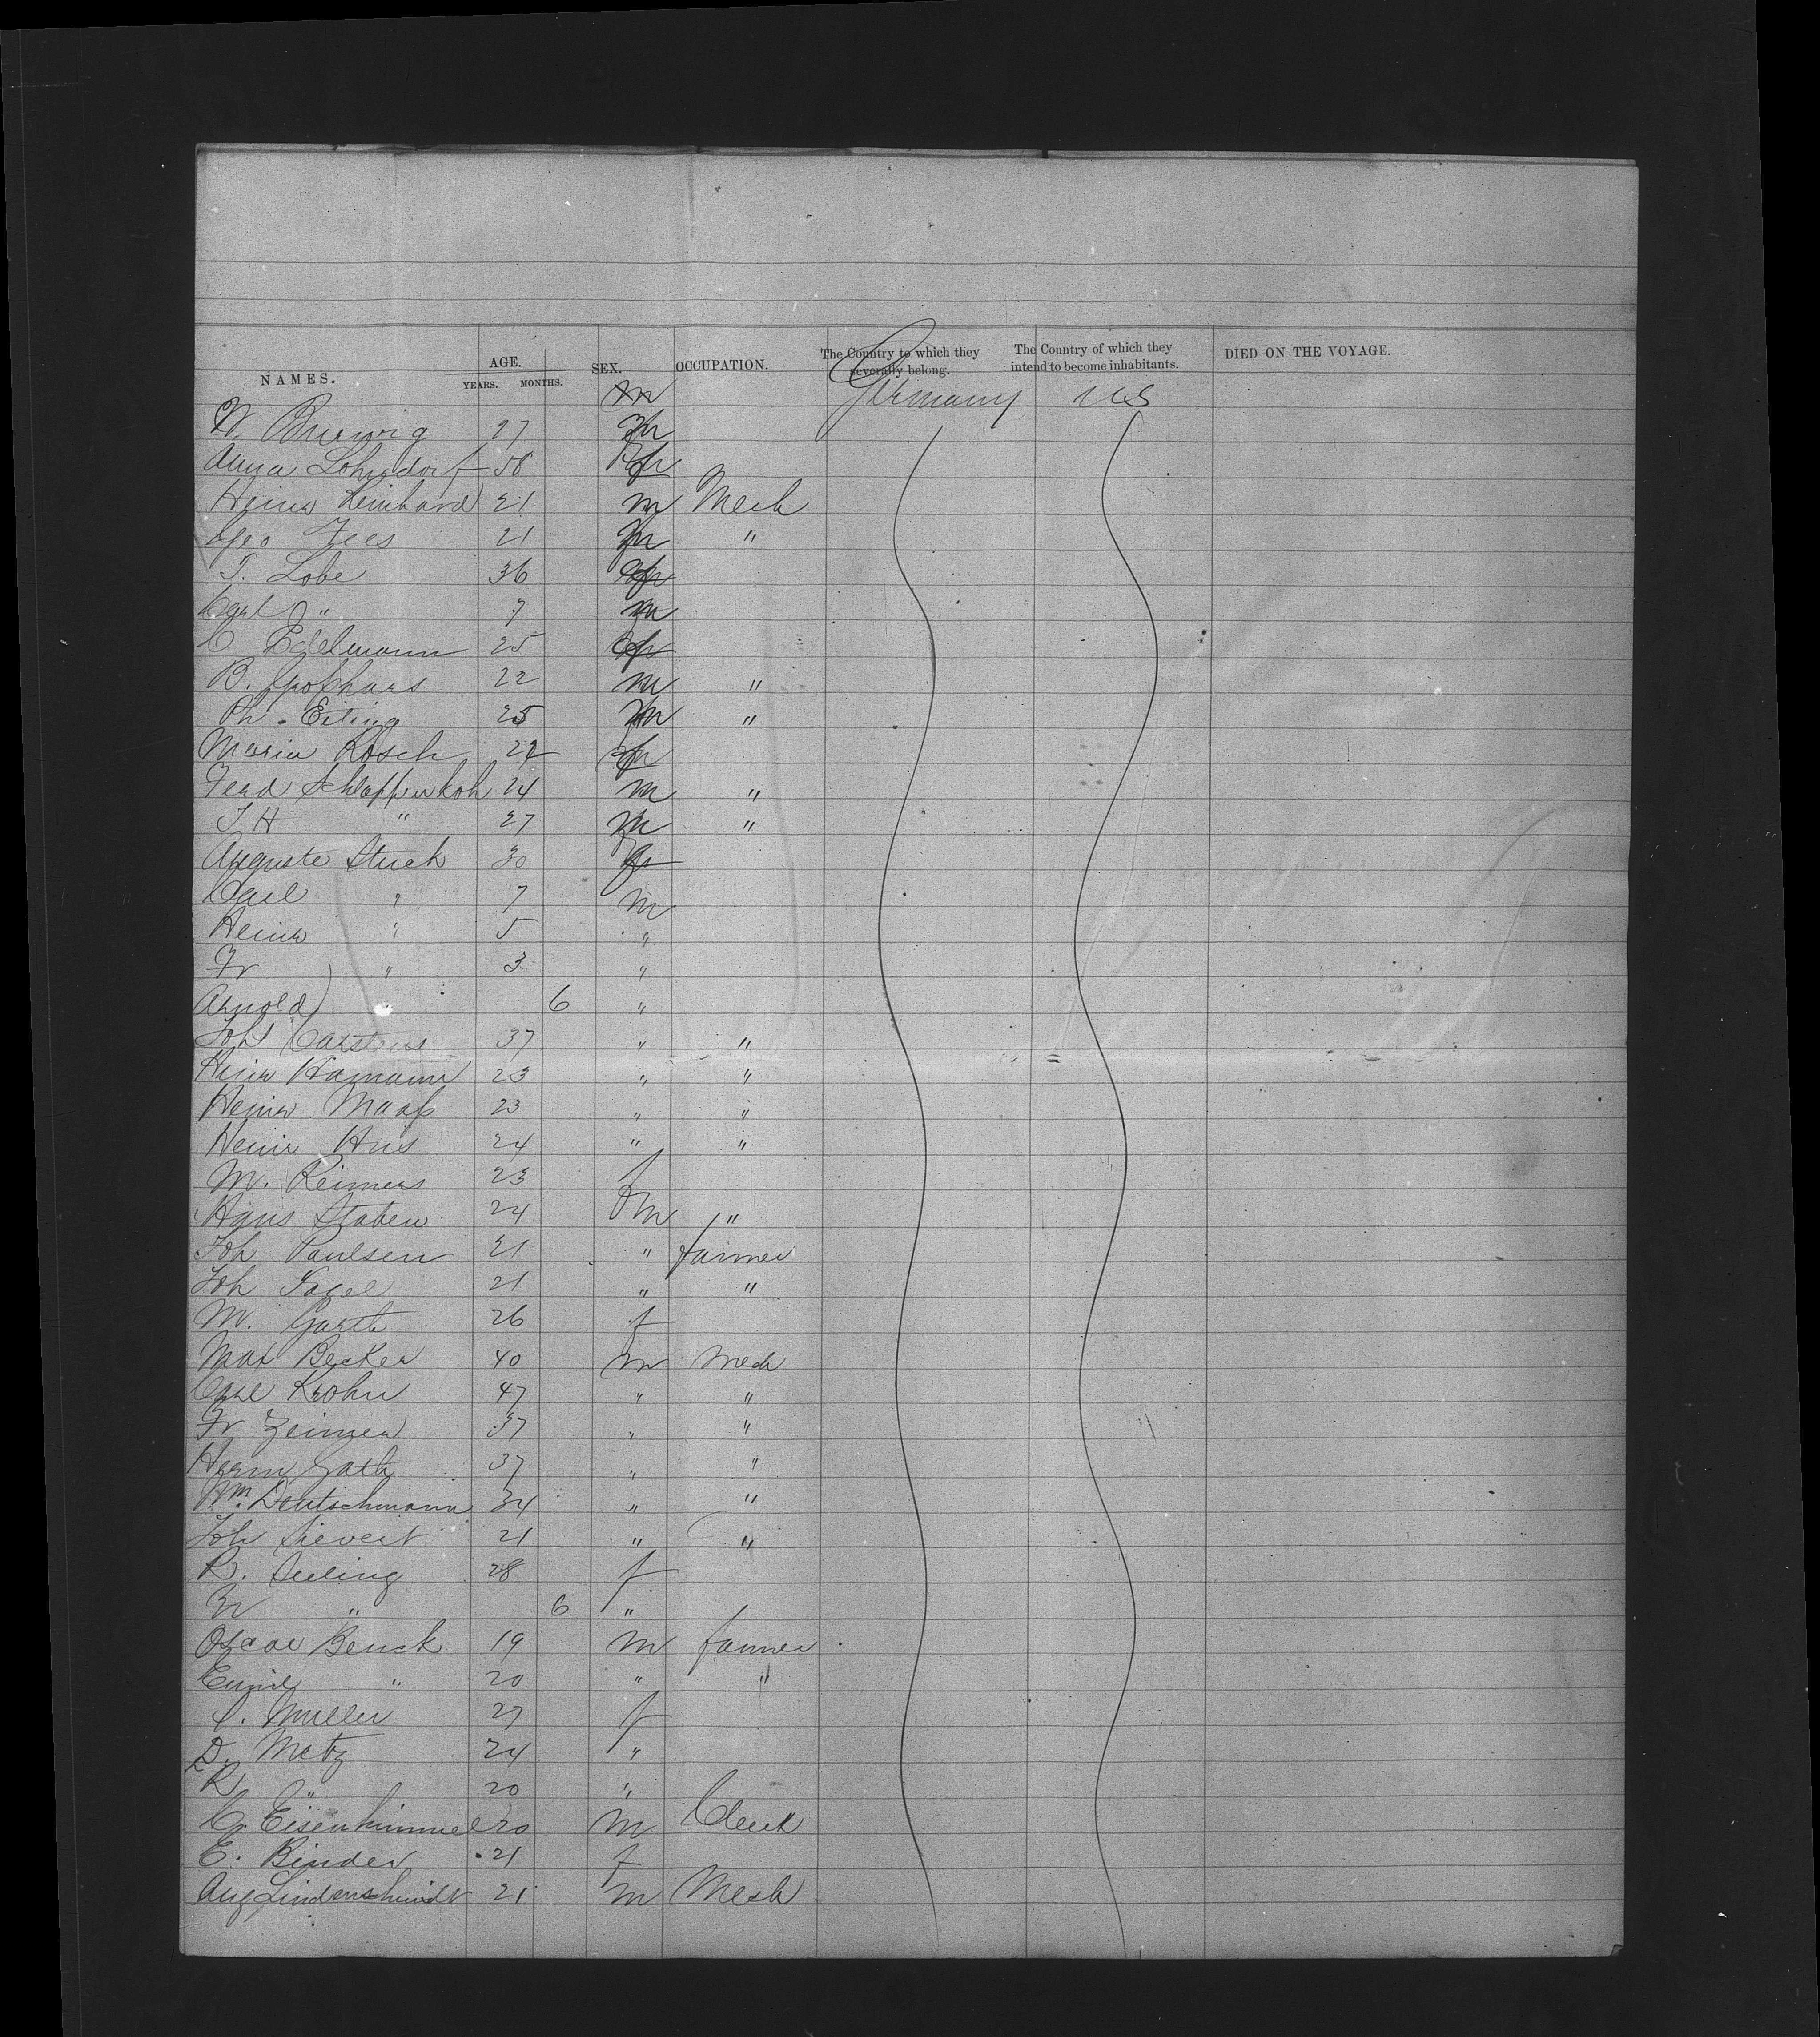 NAMES. AGE. YEARS. MONTHS. SEX. OCCUPATION. The Country to which they severally belong. The Country of which they intend to become inhabitants. DIED ON THE VOYAGE.
m Germany US
W. 27
Anna Lohrdorf 58 f
Heinr Reinhard 21 m Mech
Geo Fees 21 m "
T. Lobe 36 f
Carl " 7 m
C Edelmann 25 f
B. Groshaus 22 m "
Ph. Eiling 25 m "
Maria Kosch 22 f
Ferd Schlappukoh 24 m "
J H " 27 m "
Auguste Stuck 30 f
Carl " 7 m
Heinr " 5 "
Fr " 3 "
Arnold " 6 "
Joh Carstens 37 " "
Heinr Hamann 23 " "
Heinr Maaß 23 " "
Heinr 24 " "
M. Reimers 23 f
Hans Staben 24 m "
Joh Paulsen 21 " farmer
Joh 21 " "
M. Garth 26 f
Max Becker 40 m Mech
Carl Krohn 47 " "
Fr Zeimer 37 " "
Herm 37 " "
Wm. Deutschmann 34 " "
Joh Sievert 21 " "
B. Seeling 28 f
" 6 "
Oscar Benck 19 m farmer
Emil " 20 " "
C. Muller 27 f
D. Metz 24 "
R " 20 "
C. Eisenhimmel 20 m Clerk
E. Binder 21 f
Aug Lindenschmidt 21 m Mech